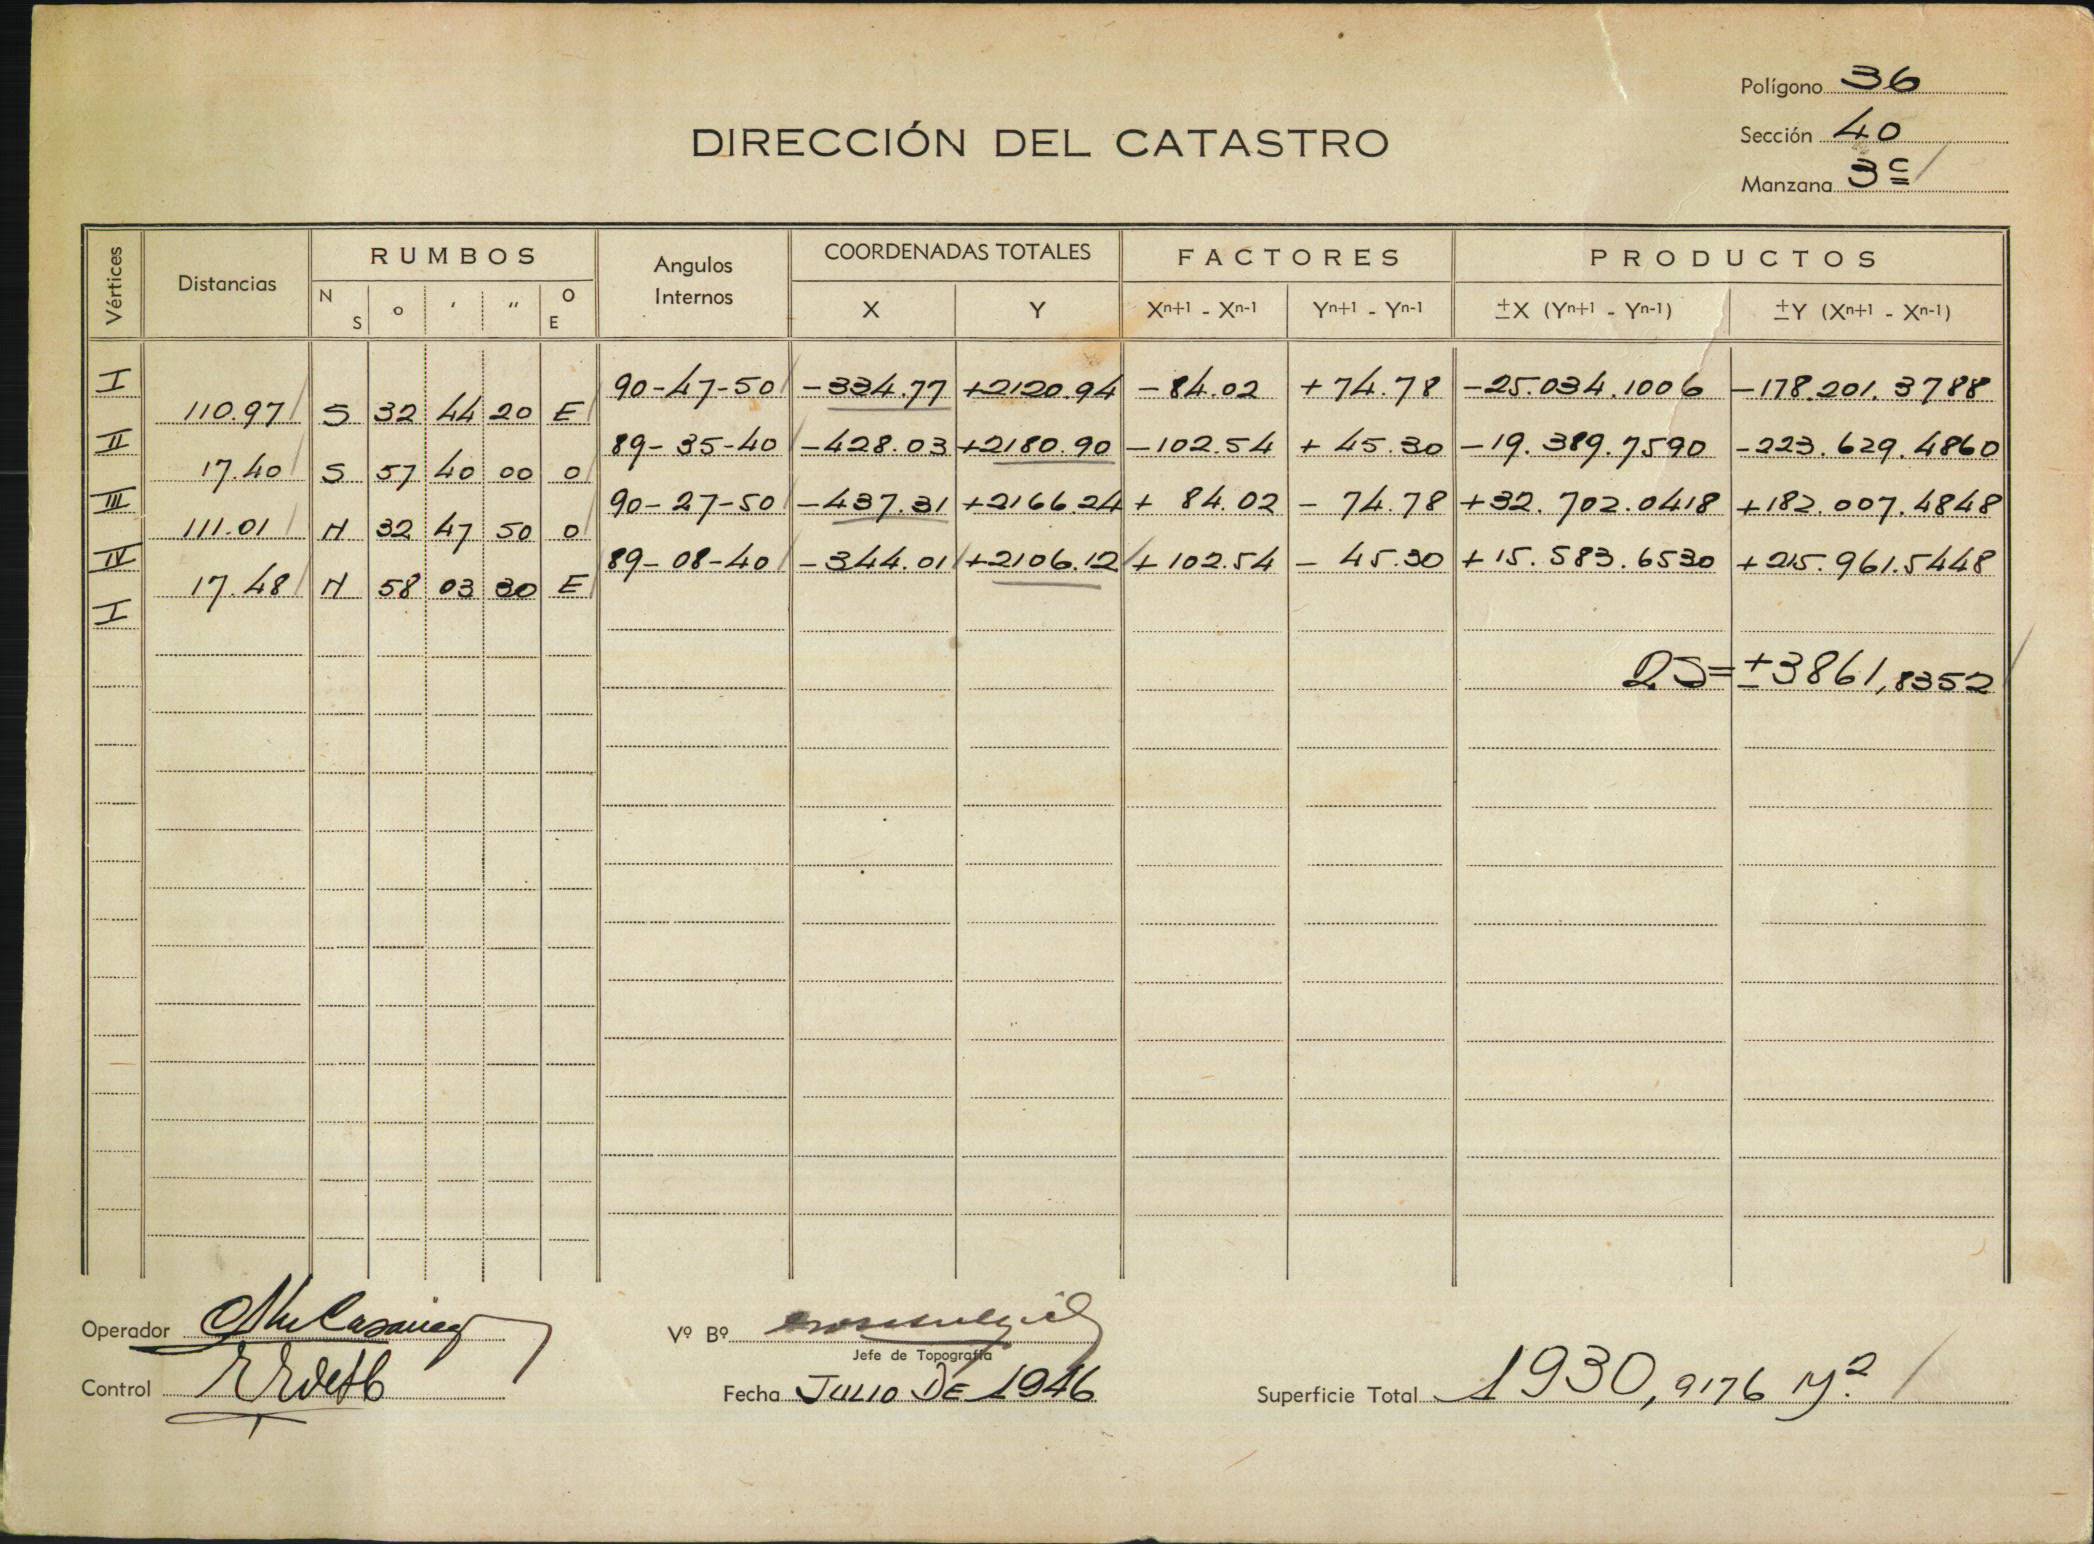 Polígono 36
Sección 40
Manzana 3c
DIRECCIÓN DEL CATASTRO
Vértices Distancias RUMBOS Angulos Internos COORDENADAS TOTALES FACTORES PRODUCTOS
N S o ' " O E X Y Xn+1 - Xn-1 Yn+1 - Yn-1 ±X (Yn+1 - Yn-1) ±Y (Xn+1 - Xn-1)
I 90-47-50 -334.77 +2120.94 -84.02 +74.78 -25.034.1006 -178.201.3788
110.97 S 32 44 20 E
II 89-35-40 -428.03 +2180.90 -102.54 +45.30 -19.389.7590 -223.629.4860
17.40 S 57 40 00 O
III 90-27-50 -437.31 +2166.24 +84.02 -74.78 +32.702.0418 +182.007.4848
111.01 N 32 47 50 O
IV 89-08-40 -344.01 +2106.12 +102.54 -45.30 +15.583.6530 +215.961.5448
17.48 N 58 03 30 E
I
2S=±3861,8352
Operador
Vº Bº
Jefe de Topografía
Control
Fecha JULIO DE 1946
Superficie Total 1930,9176 M²